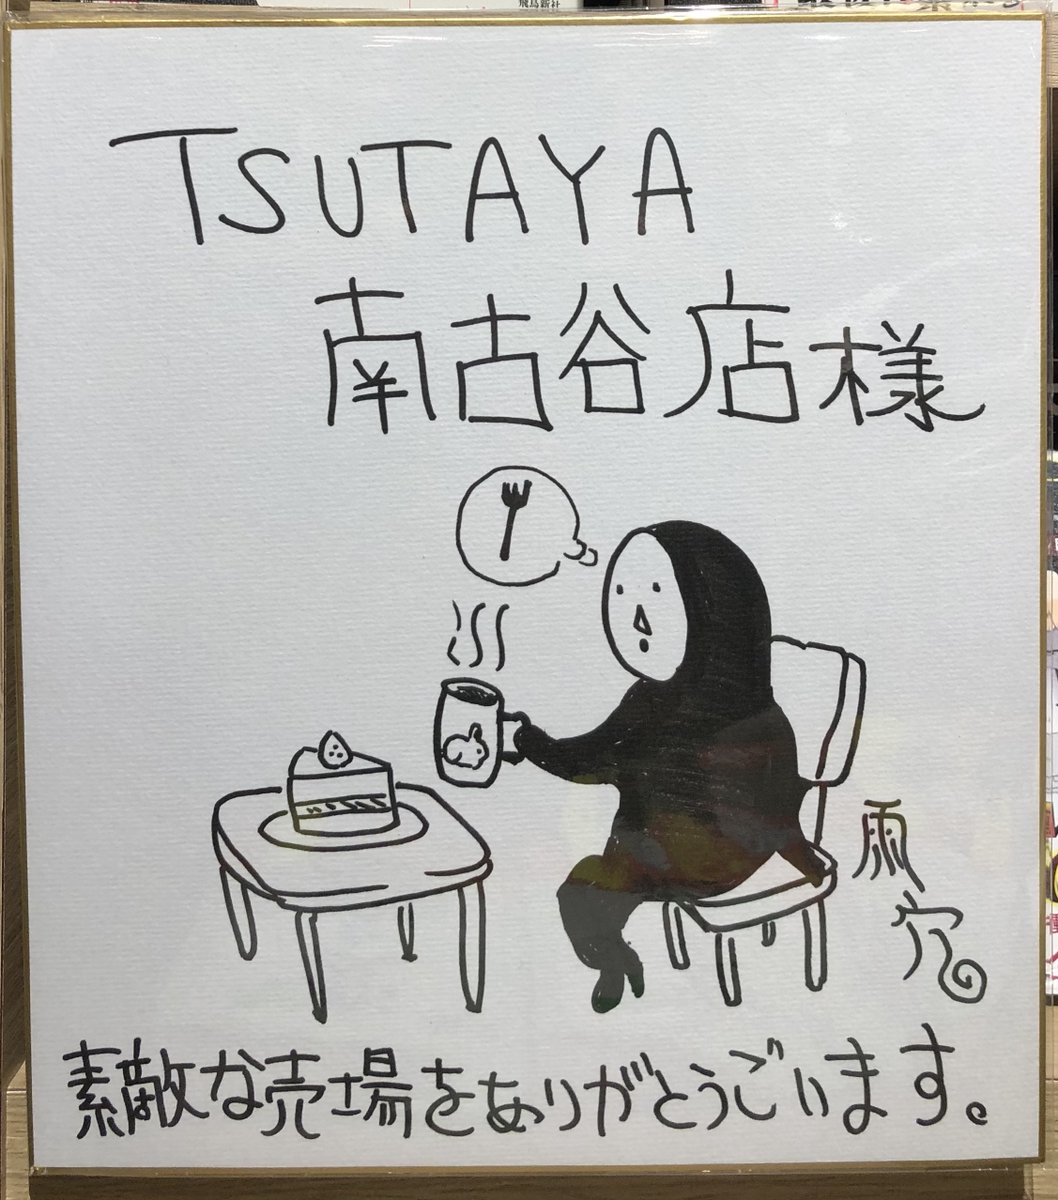 飛鳥新社
TSUTAYA
南古谷店様
雨穴
素敵な売場をありがとうございます。